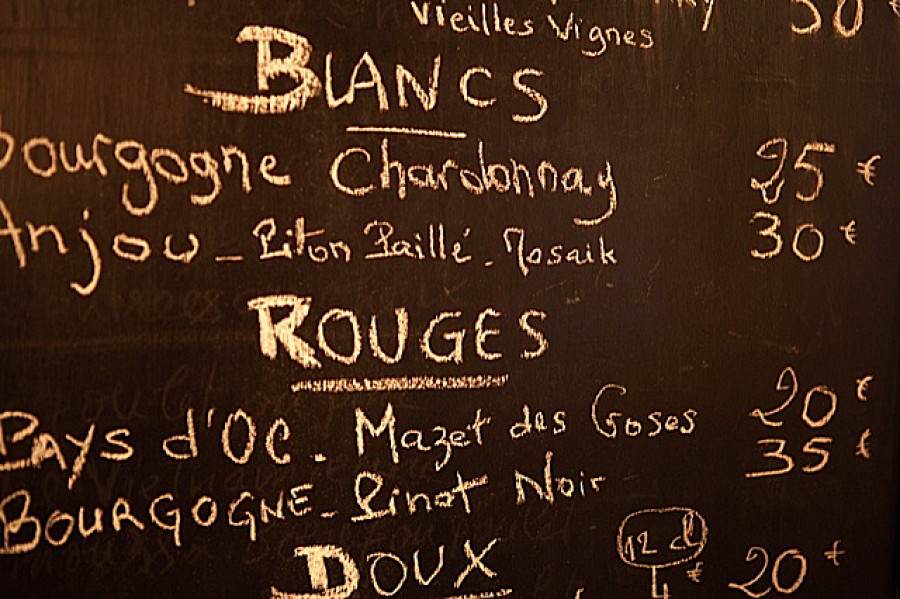 Vieilles Vignes 30
BLANCS
Bourgogne Chardonnay 25 €
Anjou - Piton Paillé - Mosaik 30 €
ROUGES
Pays d'OC - Mazet des Goses 20 €
BOURGOGNE - Pinot Noir 35 €
DOUX 12 cl
4 € 20 €